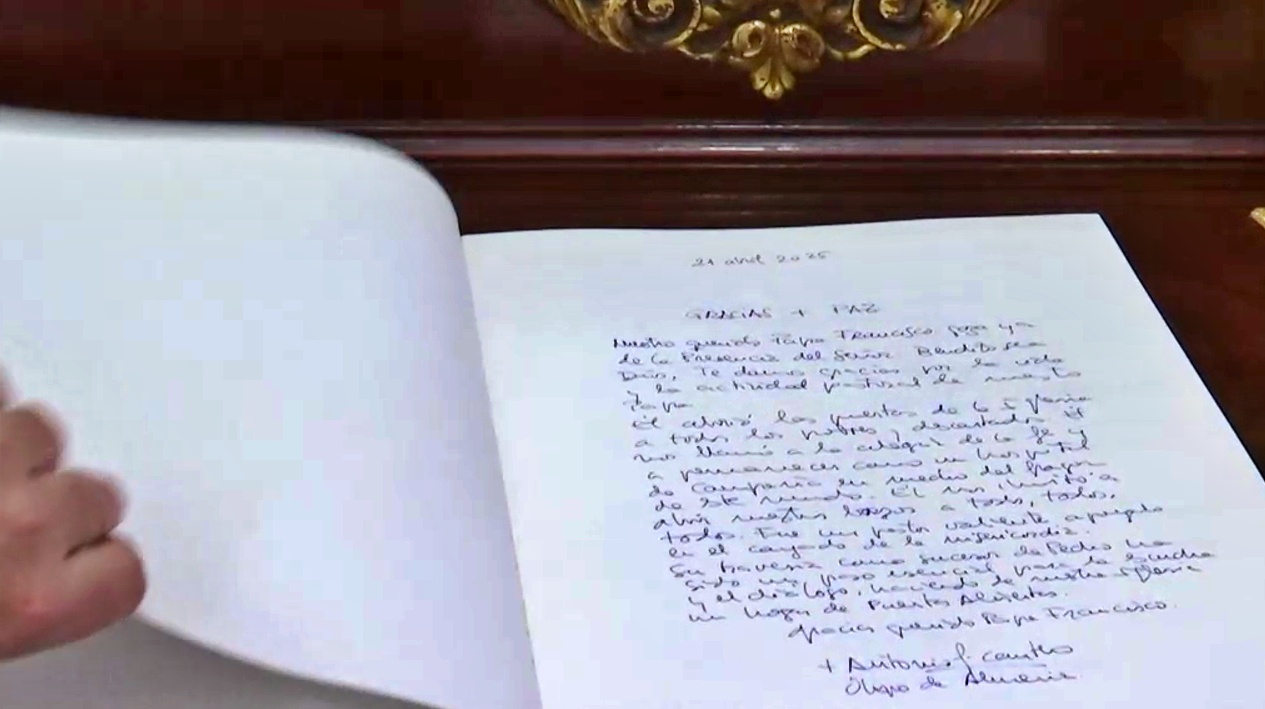 21 abril 2025
GRACIAS + PAZ
Nuestro querido Papa Francisco goza ya
de la Presencia del Señor. Bendito sea
Dios, Te damos gracias por la vida
y la actividad pastoral de nuestro
Papa.
Él abrió las puertas de la Iglesia
a todos los pobres y descartados. Él
nos llamó a la alegría de la fe y
a permanecer como un hospital
de campaña en medio del fragor
de este mundo. Él nos invitó a
abrir nuestros brazos a todos, todos,
todos. Fue un pastor valiente apoyado
en el cayado de la misericordia.
Su travesía como sucesor de Pedro ha
sido un paso esencial para la escucha
y el diálogo, haciendo de nuestra Iglesia
un hogar de Puertas Abiertas.
Gracias querido Papa Francisco.
+ Antonio Cantero
Obispo de Almería